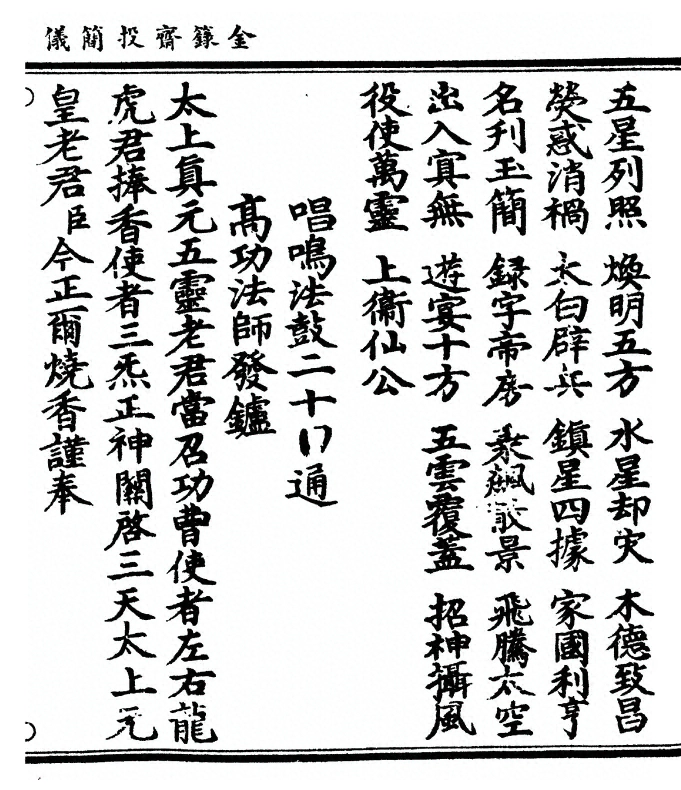 金籙齋投簡儀
五星列照 煥明五方 水星却灾 木德致昌
熒惑消禍 太白辟兵 鎮星四據 家國利亨
名刋玉簡 録字帝房 乘飈散景 飛騰太空
出入寘無 遊宴十方 五雲覆蓋 招神攝風
役使萬靈 上衞仙公
唱鳴法鼓二十 通
高功法師發鑪
太上真元五靈老君當召功曹使者左右龍
虎君捧香使者三炁正神關啓三天太上元
皇老君臣今正爾燒香謹奉